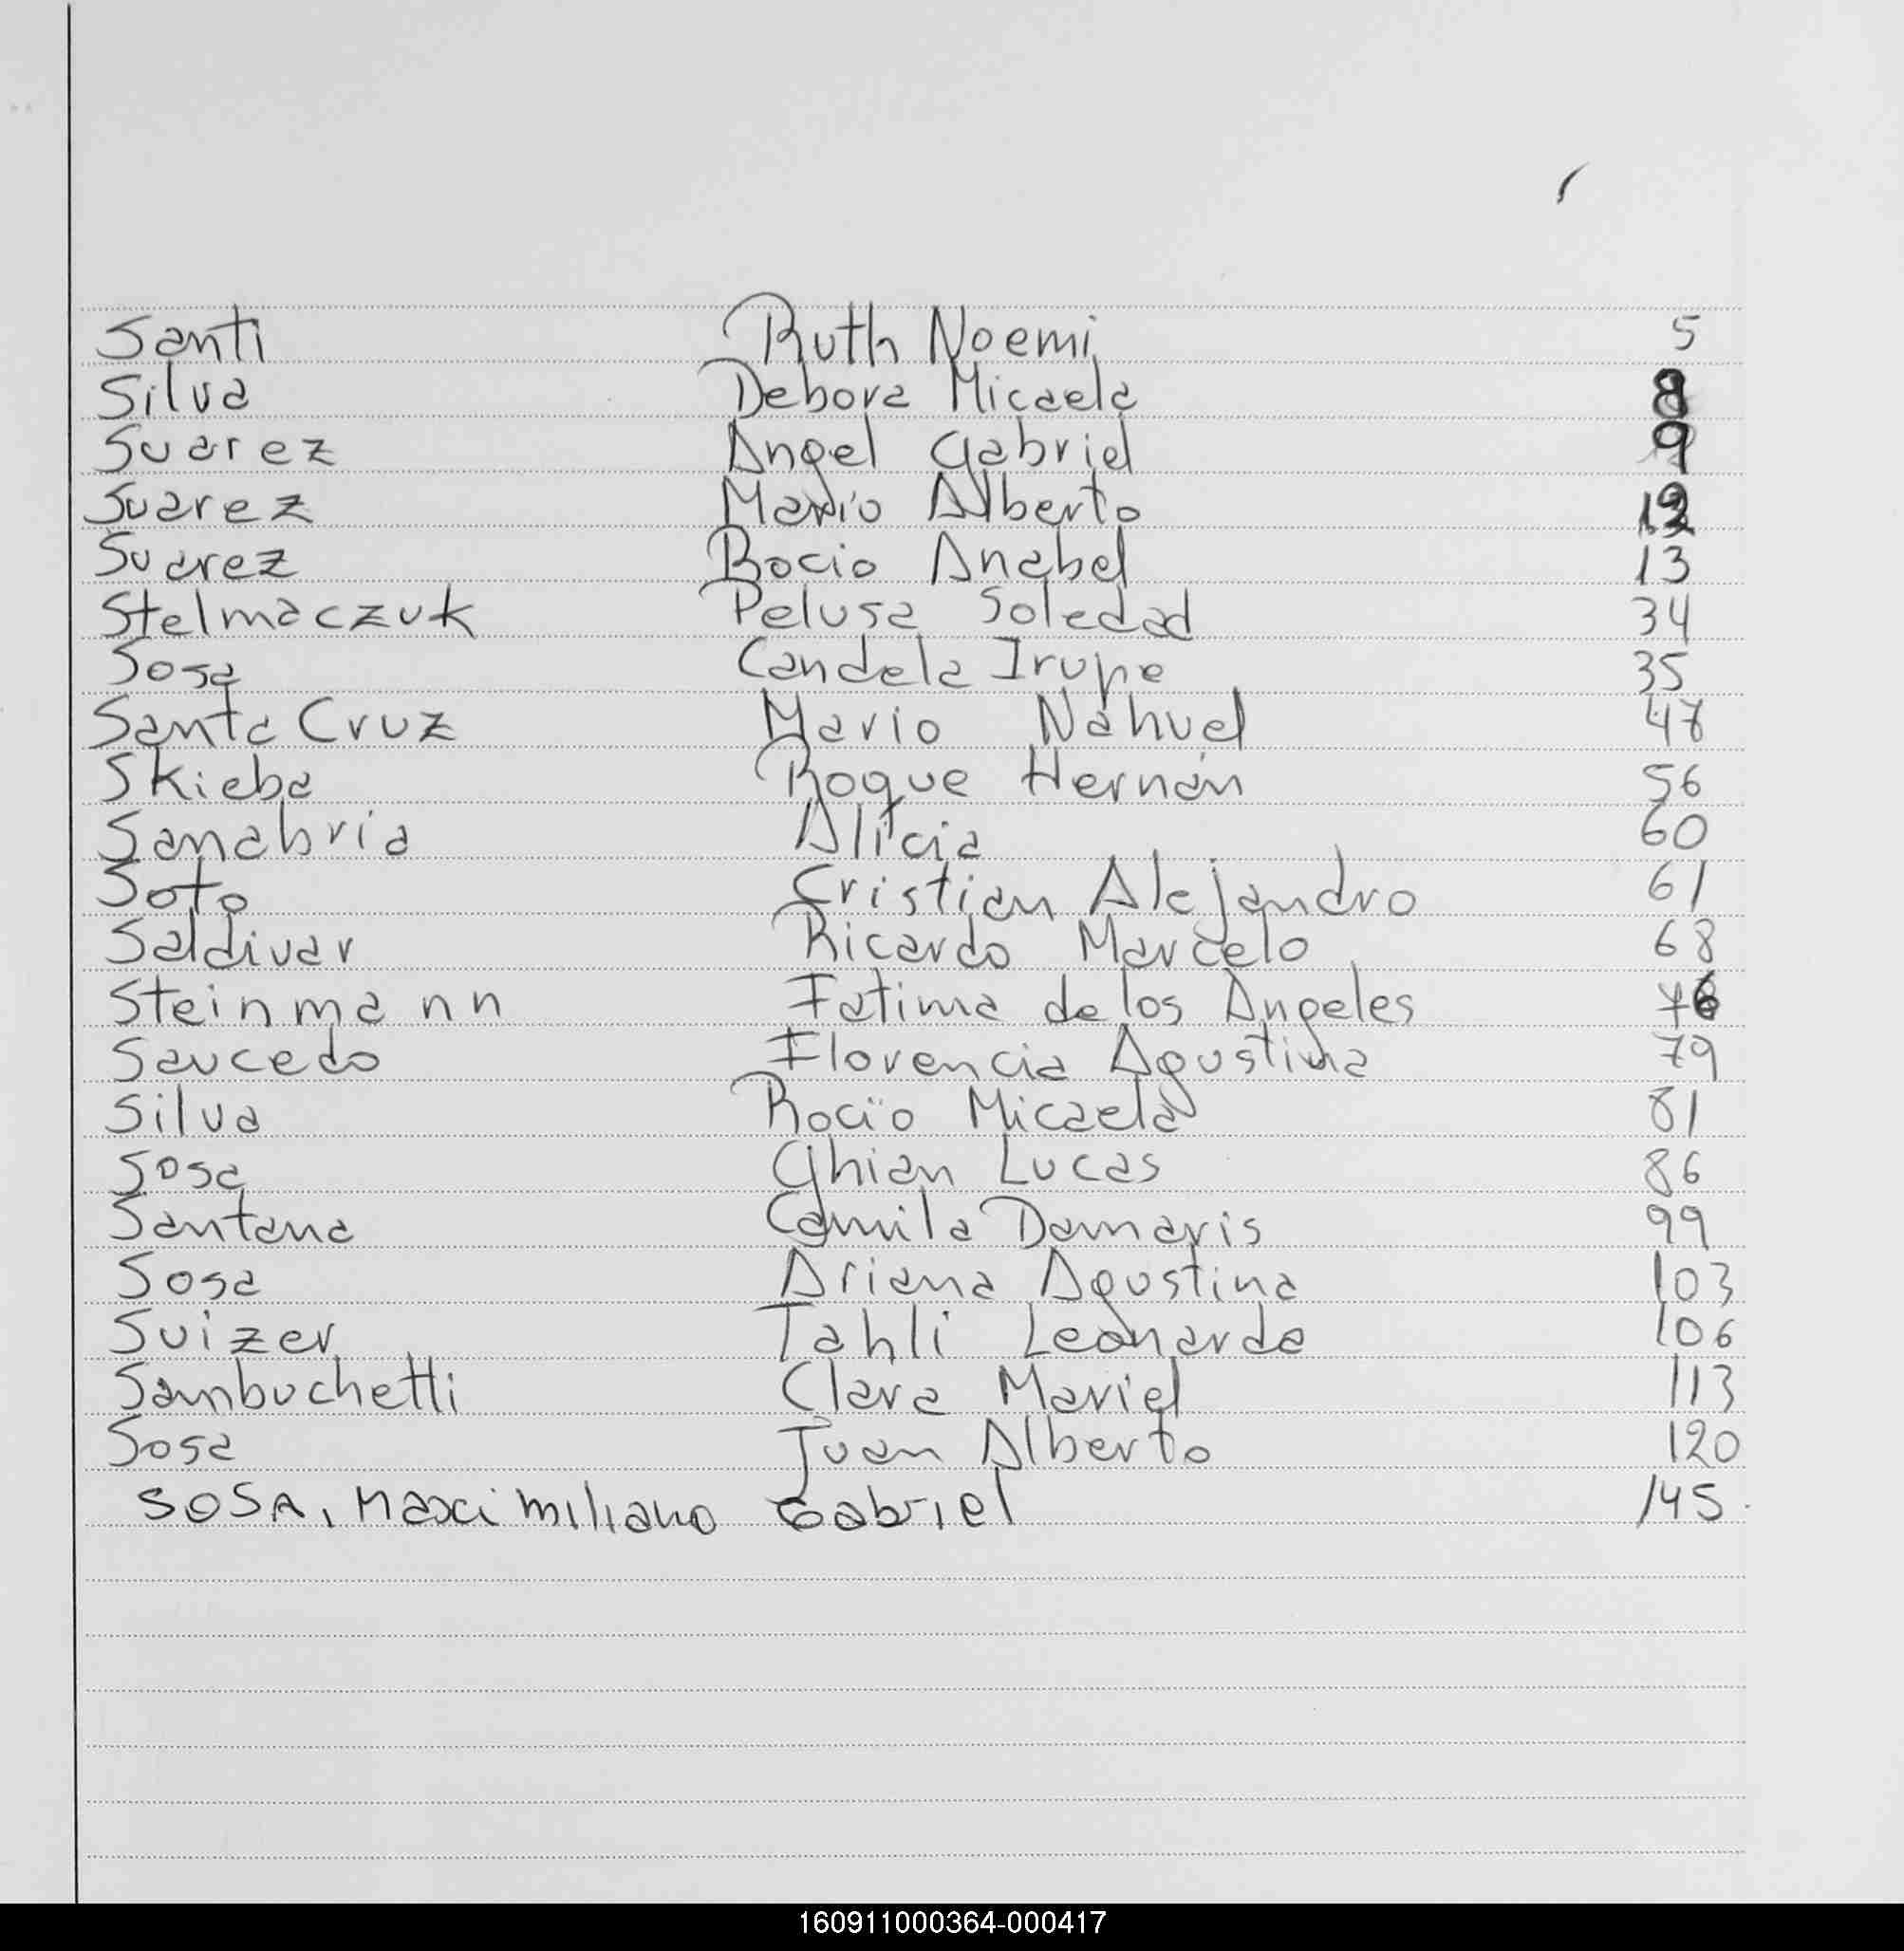 Santi Ruth Noemi 5
Silva Debora Micaela 8
Suarez Angel Gabriel 9
Suarez Mario Alberto 12
Suarez Rocio Anabel 13
Stelmaczuk Pelusa Soledad 34
Sosa Candela Irupe 35
Santa Cruz Mario Nahuel 47
Skieba Roque Hernán 56
Sanabria Alicia 60
Soto Cristian Alejandro 61
Saldivar Ricardo Marcelo 68
Steinmann Fatima de los Angeles 76
Saucedo Florencia Agustina 79
Silva Rocio Micaela 81
Sosa Ghian Lucas 86
Santana Camila Damaris 99
Sosa Ariana Agustina 103
Suizer Tahli Leonarda 106
Sambuchetti Clara Mariel 113
Sosa Juan Alberto 120
SOSA, Maximiliano Gabriel 145
160911000364-000417